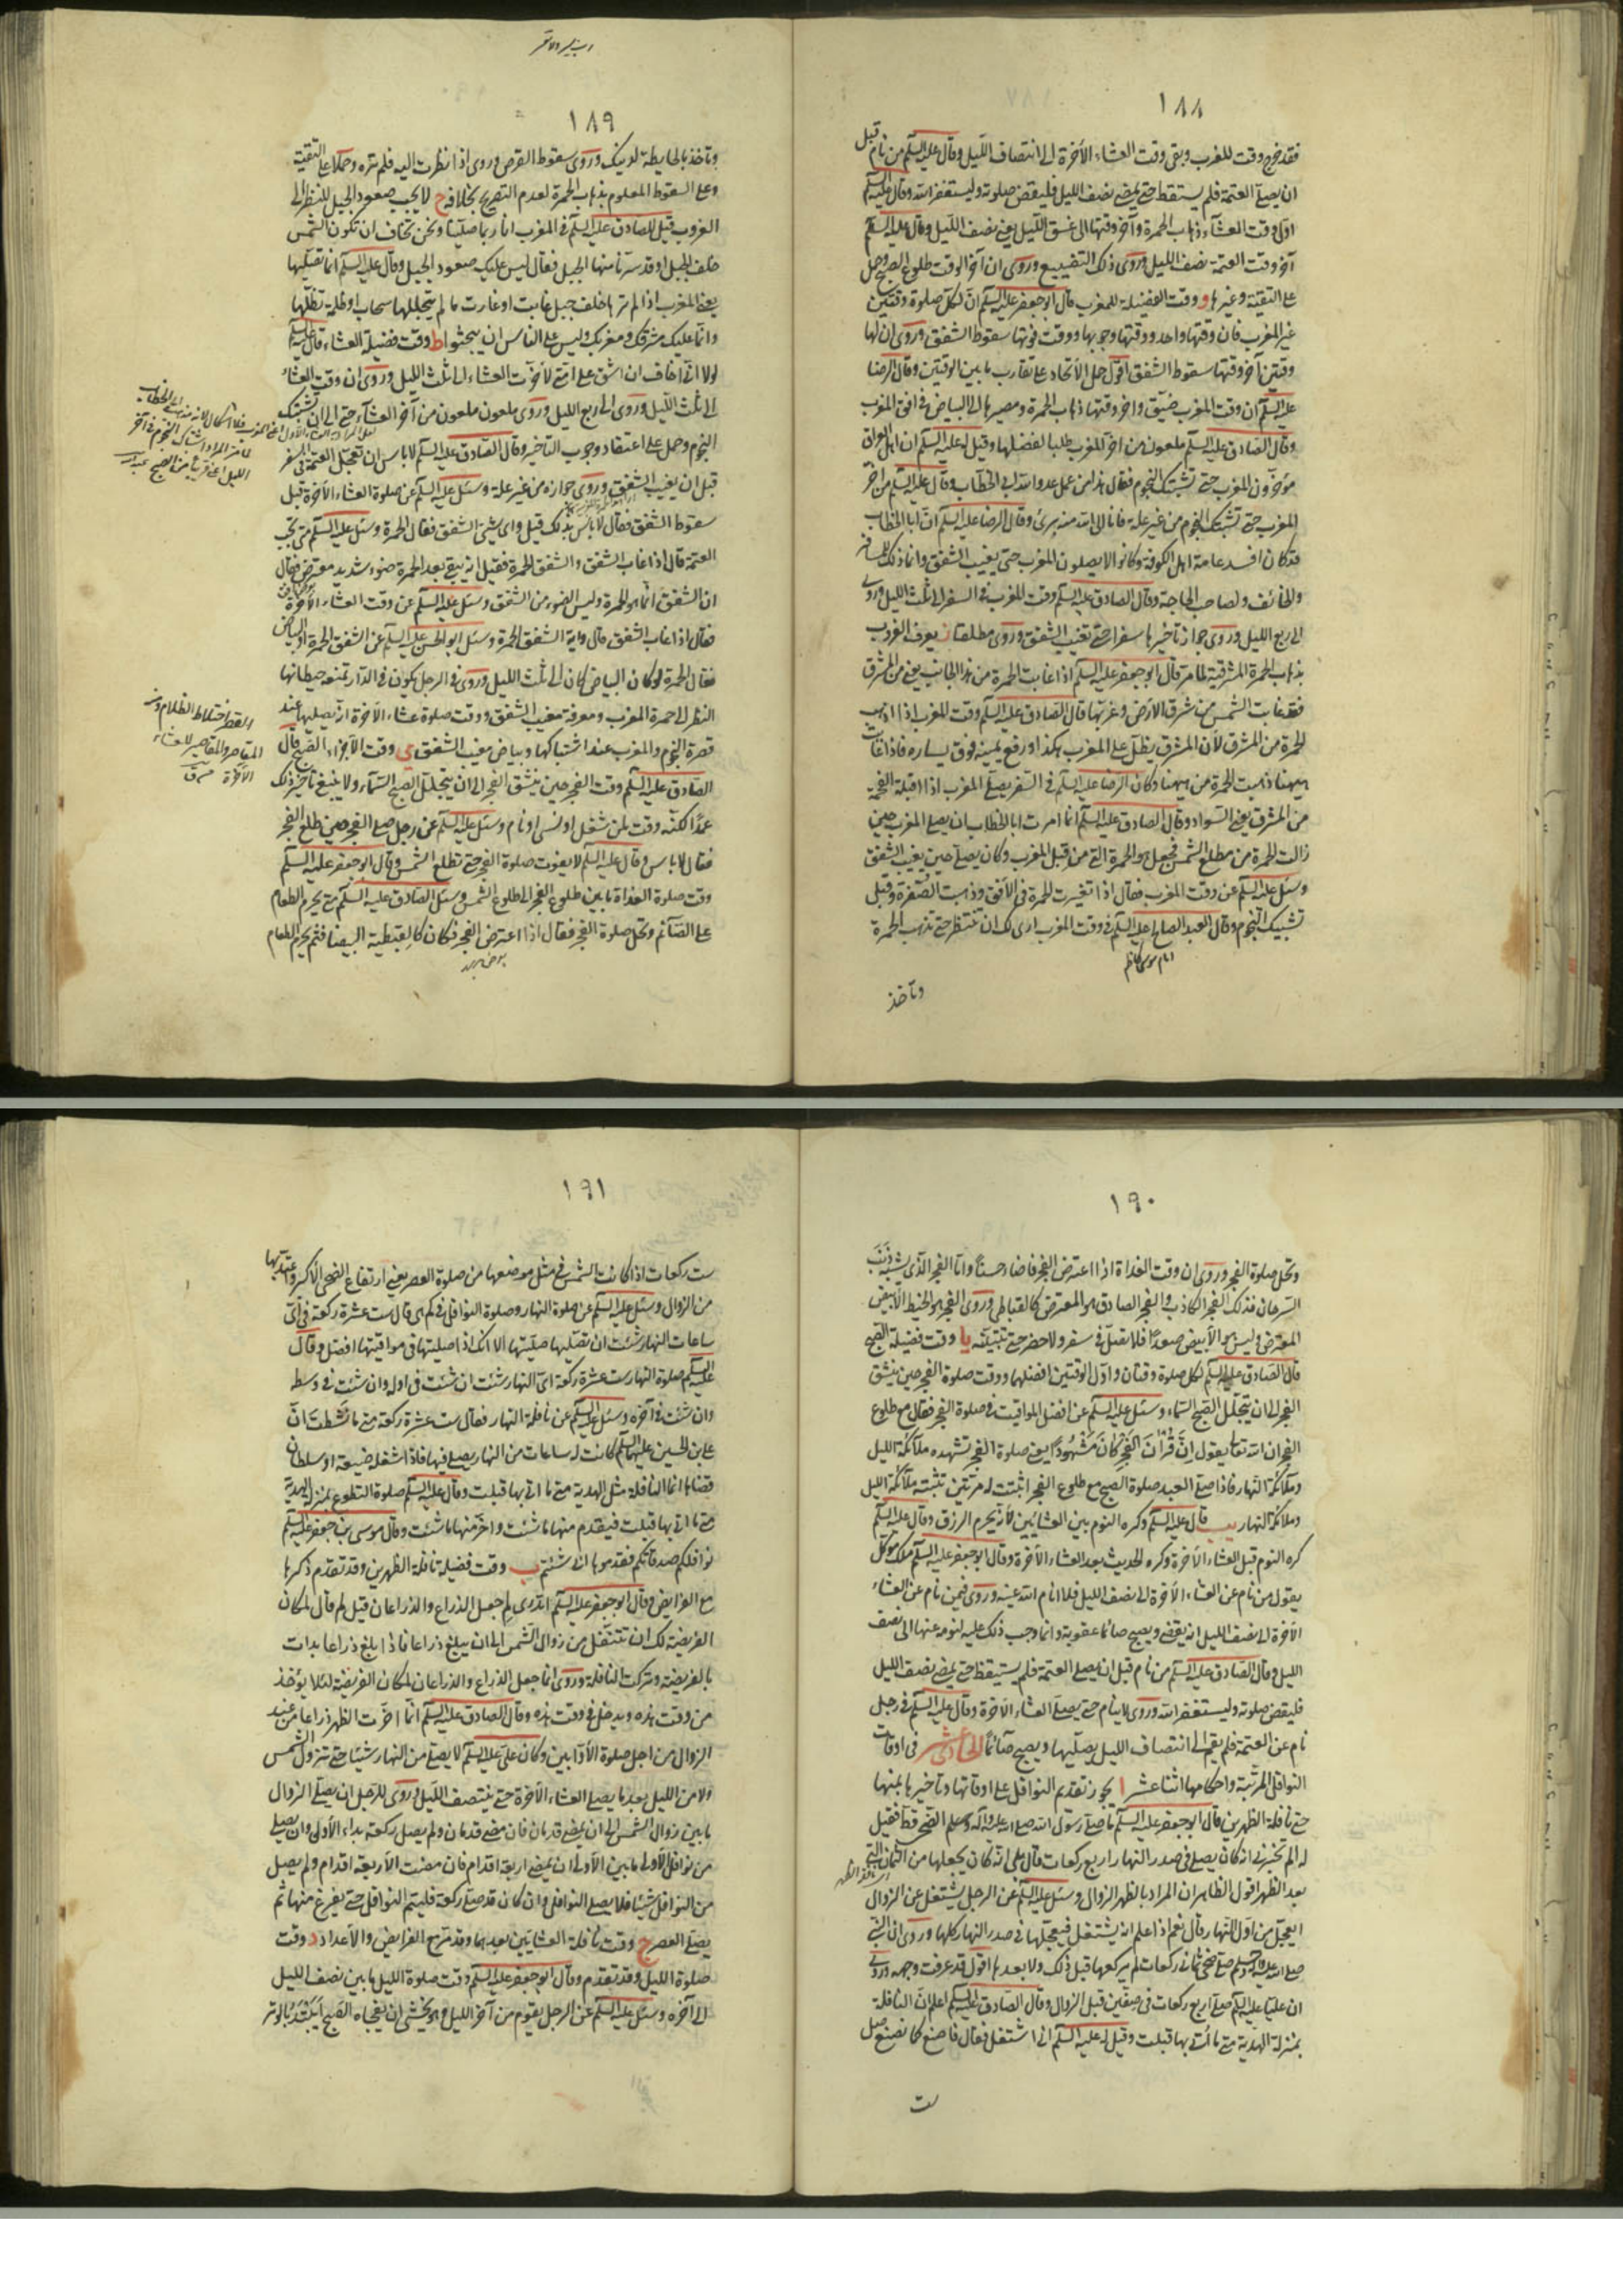 ١٨٨
فقد خرج وقت المغرب وبقى وقت العشاء الآخرة الى انتصاف الليل وقال عليه السلم من نام قبل
ان يصلى العتمة فلم يستيقظ حتى يمضى نصف الليل فليقض صلوته وليستغفر الله وقال عليه السلم
اول وقت العشاء ذهاب الحمرة وآخر وقتها الى غسق الليل يعنى نصف الليل وقال عليه السلم
آخر وقت العتمة نصف الليل وروى ذلك التضييع وروى ان آخر الوقت طلوع الصبح وحمل
على التقية وغيرها و وقت الفضيلة للمغرب قال ابو جعفر عليه السلم ان لكل صلوة وقتين
غير المغرب فان وقتها واحد ووقتها وجوبها ووقت فوتها سقوط الشفق وروى ان لها
وقتين آخر وقتها سقوط الشفق اقول حمل الاتحاد على تقارب ما بين الوقتين وقال الرضا
عليه السلم ان وقت المغرب ضيق وآخر وقتها ذهاب الحمرة ومصيرها الى البياض فى افق المغرب
وقال الصادق عليه السلم ملعون من اخر المغرب طلبا لفضلها وقيل له عليه السلم ان اهل العراق
يؤخرون المغرب حتى تشتبك النجوم فقال هذا من عمل عدو الله ابى الخطاب وقال عليه السلم من اخر
المغرب حتى تشتبك النجوم من غير علة فانا الى الله منه برئ وقال الرضا عليه السلم ان ابا الخطاب
قد كان افسد عامة اهل الكوفة وكانوا لا يصلون المغرب حتى يغيب الشفق وانما ذلك للمسافر
والخائف ولصاحب الحاجة وقال الصادق عليه السلم وقت المغرب فى السفر الى ثلث الليل وروى
الى ربع الليل وروى جواز تأخيرها سفرا حتى تغيب الشفق وروى مطلقا ز يعرف الغروب
بذهاب الحمرة المشرقية لما مر قال ابو جعفر عليه السلم اذا غابت الحمرة من هذا الجانب يعنى من المشرق
فقد غابت الشمس من شرق الارض وغربها قال الصادق عليه السلم وقت المغرب اذا ذهب
الحمرة من المشرق لأن المشرق يطل على المغرب هكذا ورفع يمينه فوق يساره فاذا غابت
ههنا ذهبت الحمرة من ههنا وكان الرضا عليه السلم فى السفر يصلى المغرب اذا اقبلت الفحمة
من المشرق يعنى السواد وقال الصادق عليه السلم انما امرت ابا الخطاب ان يصلى المغرب حين
زالت الحمرة من مطلع الشمس فجعل هو الحمرة التى من قبل المغرب وكان يصلى حين يغيب الشفق
وسئل عليه السلم عن وقت المغرب فقال اذا تغيرت الحمرة فى الافق وذهبت الصفرة وقبل
تشبيك النجوم وقال العبد الصالح عليه السلم فى وقت المغرب ارى لك ان تنتظر حتى تذهب الحمرة
امام موسى كاظم
وتأخذ
١٨٩
وتأخذ بالحايطة لدينك وروى سقوط القرص وروى اذا نظرت اليه فلم تره وحملا على التقية
وعلى السقوط المعلوم بذهاب الحمرة لعدم التصريح بخلافه ح لا يجب صعود الجبل للنظر الى
الغروب قيل للصادق عليه السلم فى المغرب انا ربما صلينا ونحن نخاف ان تكون الشمس
خلف الجبل او قد سترنا منها الجبل فقال ليس عليك صعود الجبل وقال عليه السلم انما تصليها
يعنى المغرب اذا لم ترها خلف جبل غابت او غارت ما لم يتجللها سحاب او ظلمة تظلها
وانما عليك مشرقك ومغربك وليس على الناس ان يبحثوا ط وقت فضيلة العشاء قال عليه السلم
لولا انى اخاف ان اشق على امتى لاخرت العشاء الى ثلث الليل وروى ان وقت العشاء
الى ثلث الليل وروى الى ربع الليل وروى ملعون ملعون من أخر العشاء حتى الى ان تشتبك
النجوم وحمل على اعتقاد وجوب التأخير وقال الصادق عليه السلم لا باس ان تعجل العتمة فى السفر
قبل ان يغيب الشفق وروى جوازه من غير علة وسئل عليه السلم عن صلوة العشاء الآخرة قبل
سقوط الشفق فقال لا باس بذلك قيل واى شئ الشفق فقال الحمرة وسئل عليه السلم متى تجب
العتمة قال اذا غاب الشفق والشفق الحمرة فقيل انه يبقى بعد الحمرة ضوء شديد معترض فقال
ان الشفق انما هو الحمرة وليس الضوء من الشفق وسئل عليه السلم عن وقت العشاء الآخرة
فقال اذا غاب الشفق قال وآية الشفق الحمرة وسئل ابو الحسن عليه السلم عن الشفق الحمرة او البياض
فقال الحمرة لو كان البياض كان الى ثلث الليل وروى فى الرجل يكون فى الدار تمنعه حيطانها
النظر الى حمرة المغرب ومعرفة مغيب الشفق ووقت صلوة عشاء الآخرة انه يصليها عند
قصرة النجوم والمغرب عند اشتباكها وبياض مغيب الشفق ى وقت الاجزاء للصبح قال
الصادق عليه السلم وقت الفجر حين ينشق الفجر الى ان يتجلل الصبح السماء ولا ينبغى تأخير ذلك
عمدا لكنه وقت لمن شغل او نسى او نام وسئل عليه السلم عن رجل صلى الفجر حين طلع الفجر
فقال لا باس وقال عليه السلم لا يفوت صلوة الفجر حتى تطلع الشمس وقال ابو جعفر عليه السلم
وقت صلوة الغداة ما بين طلوع الفجر الى طلوع الشمس وسئل الصادق عليه السلم متى يحرم الطعام
على الصائم وتحل صلوة الفجر فقال اذا اعترض الفجر فكان كالقبطية البيضاء فثم يحرم الطعام
القصر اختلاط الظلام
١٩٠
وتحل صلوة الفجر وروى ان وقت الغداة اذا اعترض الفجر فاضاء حسنا واما الفجر الذى يشبه ذنب
السرحان فذلك الفجر الكاذب والفجر الصادق هو المعترض كالقباطى وروى الفجر هو الخيط الابيض
المعترض وليس هو الأبيض صعدا فلا تصل فى سفر ولا حضر حتى تتبينه يا وقت فضيلة الصبح
قال الصادق عليه السلم لكل صلوة وقتان واول الوقتين افضلهما ووقت صلوة الفجر حين ينشق
الفجر الى ان يتجلل الصبح السماء وسئل عليه السلم عن افضل المواقيت فى صلوة الفجر فقال مع طلوع
الفجر ان الله تعالى يقول ان قرآن الفجر كان مشهودا يعنى صلوة الفجر تشهده ملائكة الليل
وملائكة النهار فاذا صلى العبد صلوة الصبح مع طلوع الفجر اثبتت له مرتين تثبته ملائكة الليل
وملائكة النهار يب قال عليه السلم وكره النوم بين العشائين لأنه يحرم الرزق وقال عليه السلم
كره النوم قبل العشاء الآخرة وكره الحديث بعد العشاء الآخرة وقال ابو جعفر عليه السلم ملك موكل
يقول من نام عن العشاء الآخرة الى نصف الليل فلا انام الله عينه وروى فيمن نام عن العشاء
الآخرة الى نصف الليل انه يقضى ويصبح صائما عقوبة وانما وجب ذلك عليه لنومه عنها الى نصف
الليل وقال الصادق عليه السلم من نام قبل ان يصلى العتمة فلم يستيقظ حتى يمضى نصف الليل
فليقض صلوته وليستغفر الله وروى لا ينام حتى يصلى العشاء الآخرة وقال عليه السلم فى رجل
نام عن العتمة فلم يقم الى انتصاف الليل يصليها ويصبح صائما الحادى عشر فى اوقات
النوافل المرتبة واحكامها اثنا عشر ا يجوز تقديم النوافل على اوقاتها وتأخيرها بمنها
حتى نافلة الظهرين قال ابو جعفر عليه السلم ما صلى رسول الله صلى الله عليه وآله وسلم الضحى قط فقيل
له الم تخبرنى انه كان يصلى فى صدر النهار اربع ركعات قال بلى انه كان يجعلها من الثمان التى
بعد الظهر اقول الظاهر ان المراد بالظهر الزوال وسئل عليه السلم عن الرجل يشتغل عن الزوال
ايعجل من اول النهار قال نعم اذا علم انه يشتغل فيعجلها فى صدر النهار كلها وروى ان النبى
صلى الله عليه وآله وسلم صلى ضحى ثمانى ركعات لم يركعها قبل ذلك ولا بعدها اقول قد عرفت وجهه وروى
ان عليا عليه السلم صلى اربع ركعات فى صفين قبل الزوال وقال الصادق عليه السلم اعلم ان النافلة
بمنزلة الهدية متى ما أتى بها قبلت وقيل له عليه السلم انى اشتغل فقال فاصنع كما نصنع صل
ست
١٩١
ست ركعات اذا كانت الشمس فى مثل موضعها من صلوة العصر يعنى ارتفاع الضحى الاكبر واعتد بها
من الزوال وسئل عليه السلم عن صلوة النهار وصلوة النوافل فى كم هى قال ست عشرة ركعة فى اى
ساعات النهار شئت ان تصليها صليتها الا انك اذا صليتها فى مواقيتها افضل وقال
عليه السلم صلوة النهار ست عشرة ركعة اى النهار شئت ان شئت فى اوله وان شئت فى وسطه
وان شئت فى آخره وسئل عليه السلم عن نافلة النهار فقال ست عشرة ركعة متى ما نشطت ان
على بن الحسين عليهما السلم كانت له ساعات من النهار يصلى فيها فاذا شغله ضيعة او سلطان
قضاها انما النافلة مثل الهدية متى ما اتى بها قبلت وقال عليه السلم صلوة التطوع بمنزلة الهدية
متى ما اتى بها قبلت فيقدم منها ما شئت واخر منها ما شئت وقال موسى بن جعفر عليه السلم
نوافلكم صدقاتكم فقدموها انى شئتم ب وقت فضيلة نافلة الظهرين وقد تقدم ذكرها
مع الفرايض وقال ابو جعفر عليه السلم اتدرى لم جعل الذراع والذراعان قيل لم قال لمكان
الفريضة لك ان تتنفل من زوال الشمس الى ان يبلغ ذراعا فاذا بلغ ذراعا بدات
بالفريضة وتركت النافلة وروى انما جعل الذراع والذراعان لمكان الفريضة لئلا يؤخذ
من وقت هذه ويدخل فى وقت هذه وقال الصادق عليه السلم انما اخرت الظهر ذراعا من عند
الزوال من اجل صلوة الأوابين وكان على عليه السلم لا يصلى من النهار شيئا حتى تزول الشمس
ولا من الليل بعد ما يصلى العشاء الآخرة حتى ينتصف الليل وروى للرجل ان يصلى الزوال
ما بين زوال الشمس الى ان يمضى قدمان فان مضى قدمان ولم يصل ركعة بداء بالأولى وان يصلى
من نوافل الأولى ما بين الأولى ان يمضى اربعة اقدام فان مضت الأربعة اقدام ولم يصل
من النوافل شيئا فلا يصلى النوافل وان كان قد صلى ركعة فليتم النوافل حتى يفرغ منها ثم
يصلى العصر ج وقت نافلة العشايين بعدهما وقد مر مع الفرايض والأعداد د وقت
صلوة الليل وقد تقدم وقال ابو جعفر عليه السلم وقت صلوة الليل ما بين نصف الليل
الى آخره وسئل عليه السلم عن الرجل يقوم من آخر الليل وهو يخشى ان يفجأه الصبح ايبتدئ بالوتر